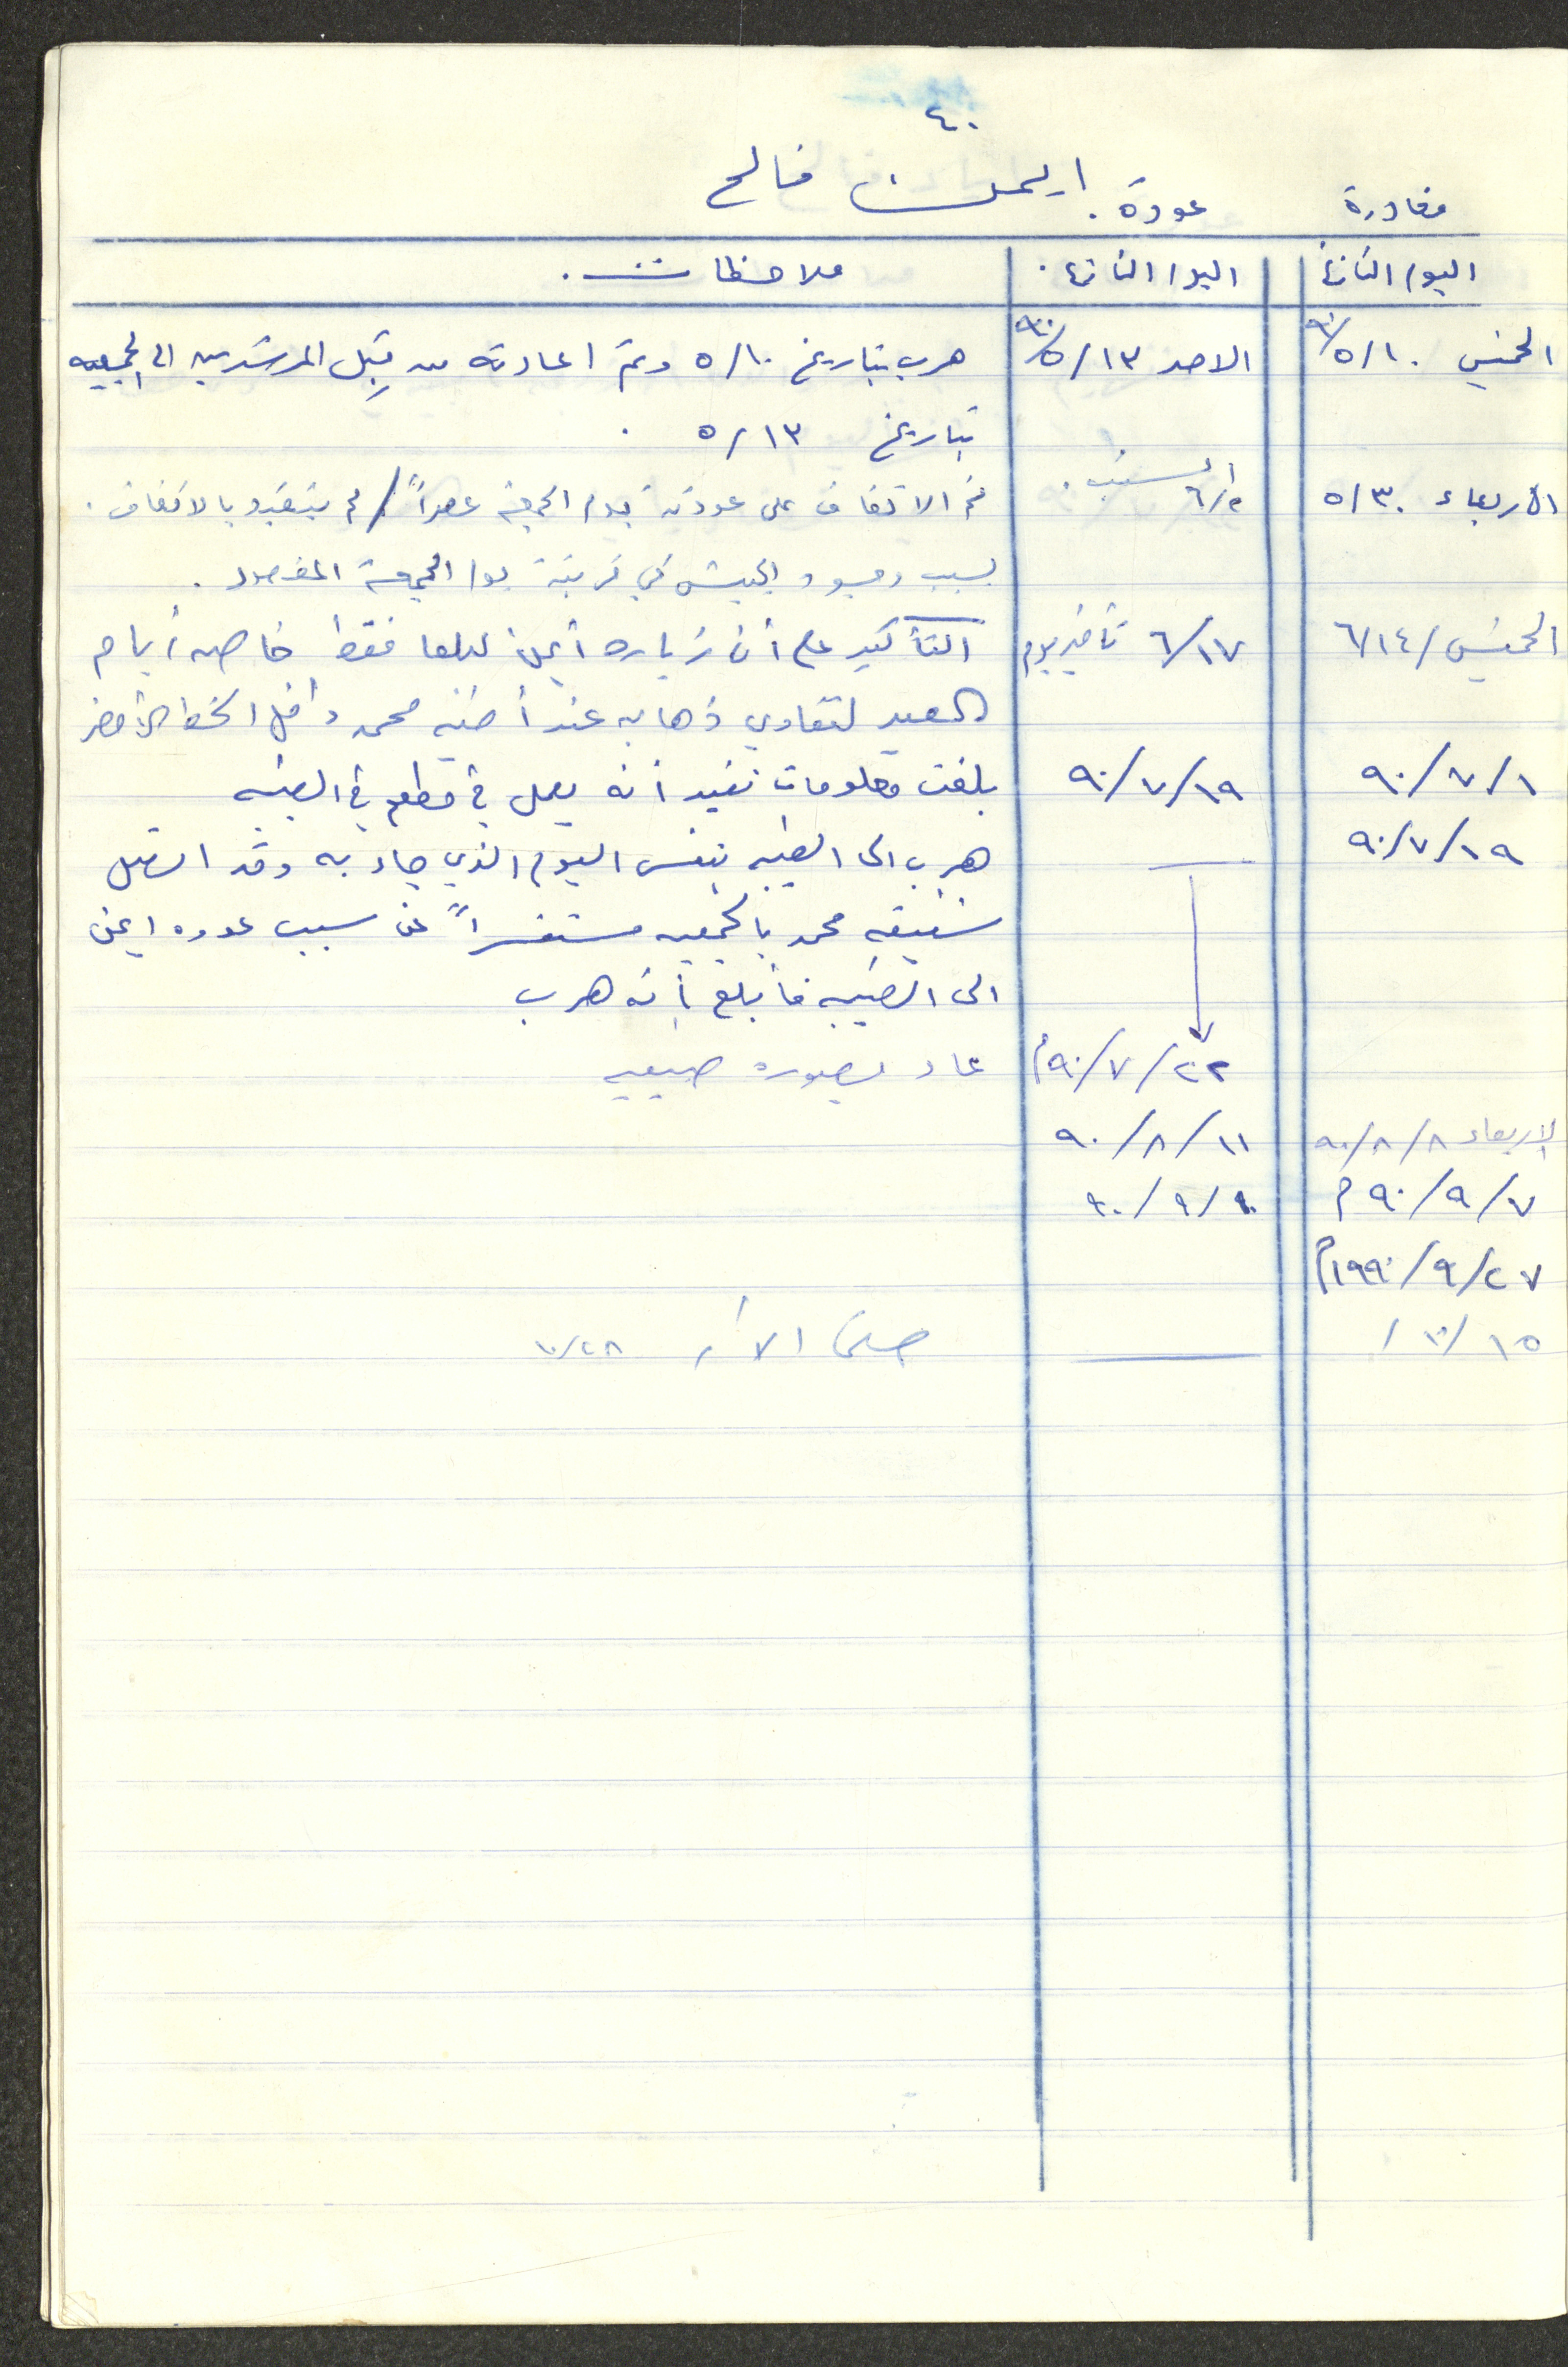 ٤٠
مغادرة عودة. ايمن فالح
اليوم التاريخ اليوم التاريخ. ملاحظات.
الخميس ٥/١٠/٩٠ الاحد ٥/١٣/٩٠ هرب بتاريخ ٥/١٠ وتم اعادته من قِبل المرشدين الى الجمعيه
بتاريخ ٥/١٣ .
الأربعاء ٥/٣٠ السبت ٦/٢. تم الاتفاق على عودته يوم الجمعة عصراً / لم يتقيد بالاتفاق.
بسبب وجود الجيش في قريته يوم الجمعة المقصود.
الخميس ٦/١٤ ٦/١٧ تأخير يوم التأكيد على أن زيارة أيمن فقط خاصه أيام
العيد لتفادي ذهابه عند أخيه محمد داخل الخط الأخضر
٩٠/٧/١ ٩٠/٧/١٩ بلغت معلومات تفيد انه يعمل في مطعم في الطيبه
٩٠/٧/١٩ هرب الى الطيبه بنفس اليوم الذي جاء به وقد اتصل
شقيقه محمد بالجمعيه مستفسراً عن سبب عوده ايمن
الى الطيبه فأبلغ بأنه هرب
٩٠/٧/٢٢م عاد بصوره طبيعيه
الاربعاء ٩٠/٨/٨ ٩٠/٨/١١
٩٠/٩/٧م ٩٠/٩/٩
١٩٩٠/٩/٢٧م
١٠/١٥ حتى الآن ١٠/٢٨